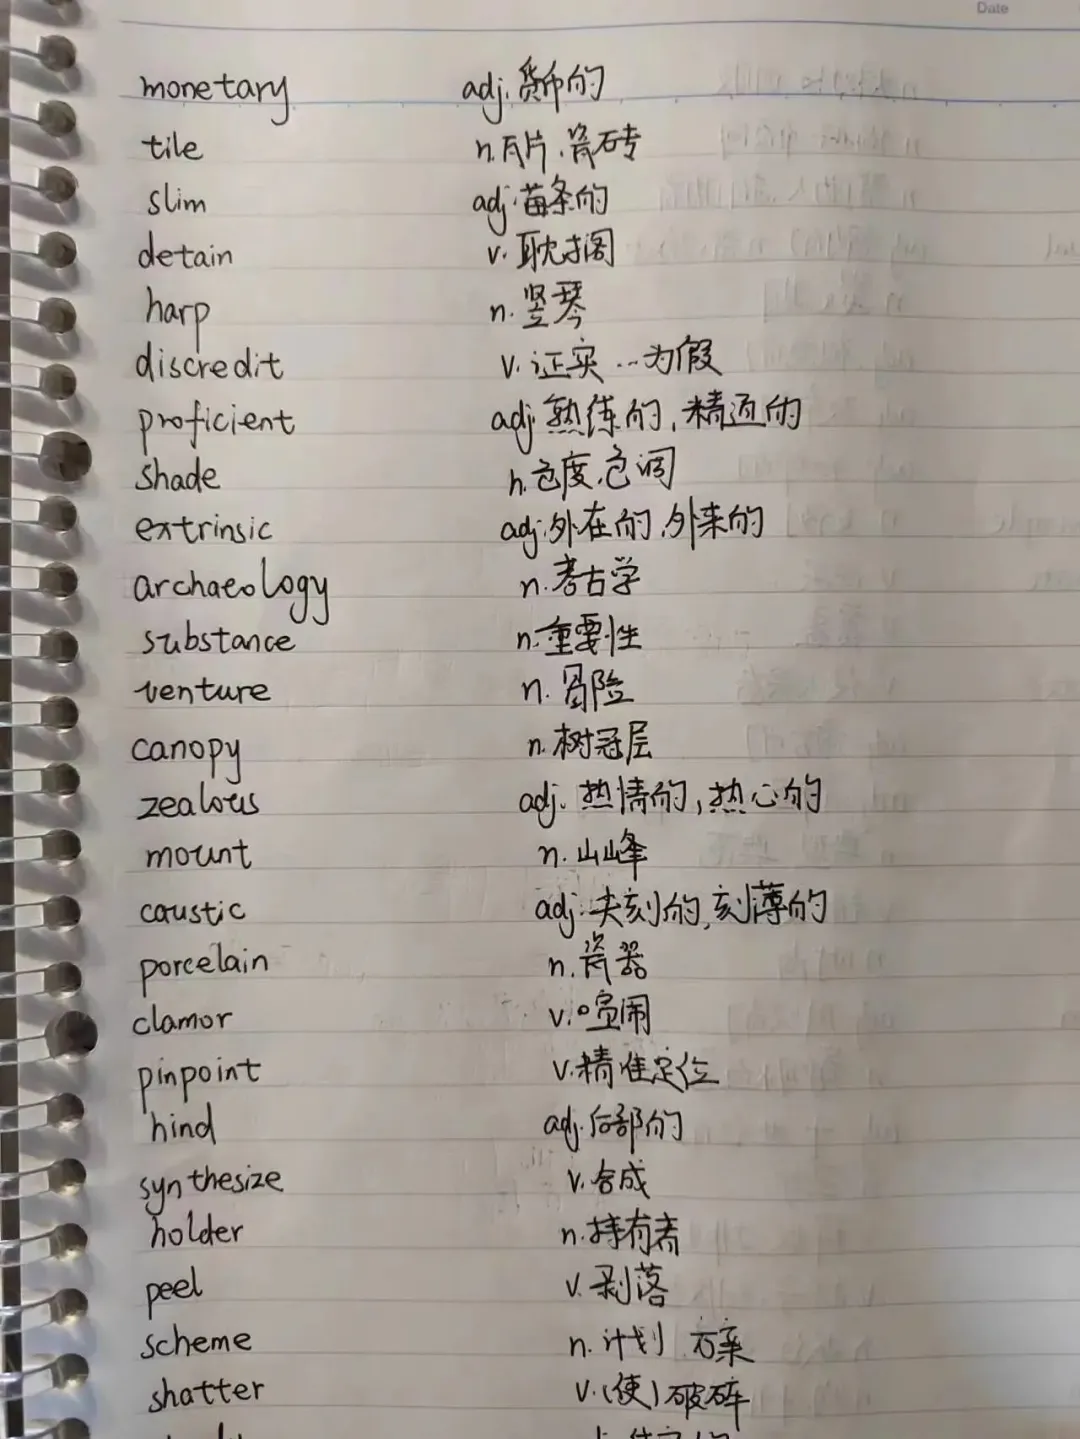 Date
monetary adj. 货币的
tile n. 瓦片、瓷砖
slim adj. 苗条的
detain v. 耽搁
harp n. 竖琴
discredit v. 证实…为假
proficient adj. 熟练的, 精通的
shade n. 色度、色调
extrinsic adj. 外在的、外来的
archaeology n. 考古学
substance n. 重要性
venture n. 冒险
canopy n. 树冠层
zealous adj. 热情的, 热心的
mount n. 山峰
caustic adj. 尖刻的, 刻薄的
porcelain n. 瓷器
clamor v. 喧闹
pinpoint v. 精准定位
hind adj. 后部的
synthesize v. 合成
holder n. 持有者
peel v. 剥落
scheme n. 计划 方案
shatter v. (使) 破碎